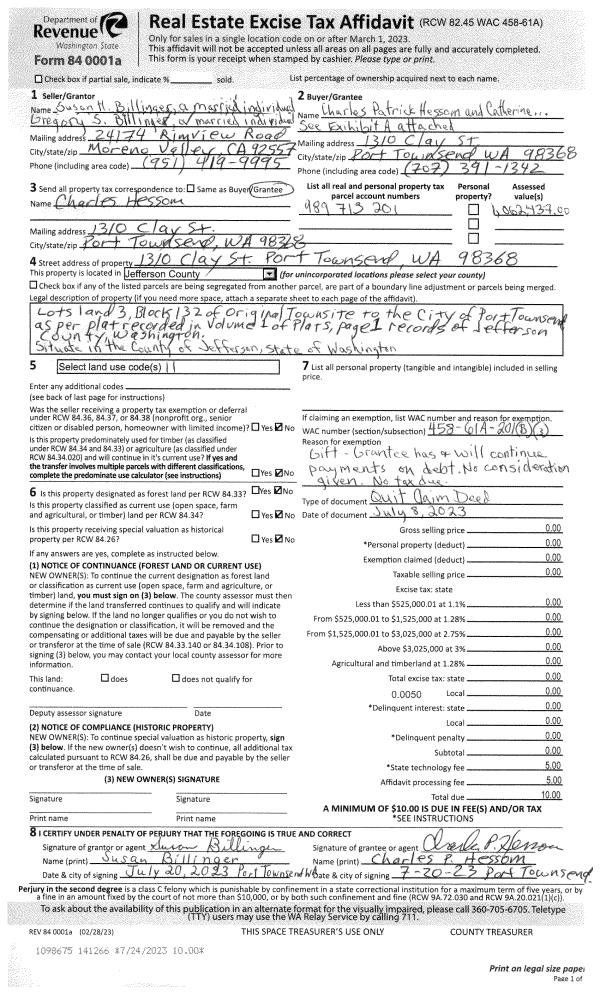 Department of
Revenue
Washington State
Form 84 0001a
Real Estate Excise Tax Affidavit (RCW 82.45 WAC 458-61A)
Only for sales in a single location code on or after March 1, 2023.
This affidavit will not be accepted unless all areas on all pages are fully and accurately completed.
This form is your receipt when stamped by cashier. Please type or print.
Check box if partial sale, indicate % sold.
List percentage of ownership acquired next to each name.
1 Seller/Grantor
Name Susan H. Billinger, a married individual
Gregory S. Billinger, a married individual
Mailing address 24174 Rimview Road
City/state/zip Moreno Valley, CA 92557
Phone (including area code) (951) 419-9995
2 Buyer/Grantee
Name Charles Patrick Hessom and Catherine...
See Exhibit A attached
Mailing address 1310 Clay St
City/state/zip Port Townsend WA 98368
Phone (including area code) (707) 391-1342
3 Send all property tax correspondence to: Same as Buyer/Grantee
Name Charles Hessom
Mailing address 1310 Clay St.
City/state/zip Port Townsend, WA 98368
List all real and personal property tax parcel account numbers
Personal property?
Assessed value(s)
989 713 201
4 Street address of property 1310 Clay St. Port Townsend, WA 98368
This property is located in Jefferson County (for unincorporated locations please select your county)
Check box if any of the listed parcels are being segregated from another parcel, are part of a boundary line adjustment or parcels being merged.
Legal description of property (if you need more space, attach a separate sheet to each page of the affidavit).
Lots 1 and 3, Block 132 of Original Townsite to the City of Port Townsend
as per plat recorded in Volume 1 of Plats, page 1 records of Jefferson
County, Washington.
Situate in the County of Jefferson, State of Washington
5 Select land use code(s) 11
Enter any additional codes
(see back of last page for instructions)
Was the seller receiving a property tax exemption or deferral
under RCW 84.36, 84.37, or 84.38 (nonprofit org., senior
citizen or disabled person, homeowner with limited income)? Yes No
Is this property predominately used for timber (as classified
under RCW 84.34 and 84.33) or agriculture (as classified under
RCW 84.34.020) and will continue in it's current use? If yes and
the transfer involves multiple parcels with different classifications,
complete the predominate use calculator (see instructions) Yes No
6 Is this property designated as forest land per RCW 84.33? Yes No
Is this property classified as current use (open space, farm
and agricultural, or timber) land per RCW 84.34? Yes No
Is this property receiving special valuation as historical
property per RCW 84.26? Yes No
If any answers are yes, complete as instructed below.
(1) NOTICE OF CONTINUANCE (FOREST LAND OR CURRENT USE)
NEW OWNER(S): To continue the current designation as forest land
or classification as current use (open space, farm and agriculture, or
timber) land, you must sign on (3) below. The county assessor must then
determine if the land transferred continues to qualify and will indicate
by signing below. If the land no longer qualifies or you do not wish to
continue the designation or classification, it will be removed and the
compensating or additional taxes will be due and payable by the seller
or transferor at the time of sale (RCW 84.33.140 or 84.34.108). Prior to
signing (3) below, you may contact your local county assessor for more
information.
This land: does does not qualify for
continuance.
Deputy assessor signature Date
(2) NOTICE OF COMPLIANCE (HISTORIC PROPERTY)
NEW OWNER(S): To continue special valuation as historic property, sign
(3) below. If the new owner(s) doesn't wish to continue, all additional tax
calculated pursuant to RCW 84.26, shall be due and payable by the seller
or transferor at the time of sale.
(3) NEW OWNER(S) SIGNATURE
Signature Signature
Print name Print name
7 List all personal property (tangible and intangible) included in selling
price.
If claiming an exemption, list WAC number and reason for exemption.
WAC number (section/subsection) 458-61A-201(B)(3)
Reason for exemption
Gift - Grantee has & will continue
payments on debt. No consideration
given. No tax due.
Type of document Quit Claim Deed
Date of document July 8, 2023
Gross selling price 0.00
*Personal property (deduct) 0.00
Exemption claimed (deduct) 0.00
Taxable selling price 0.00
Excise tax: state
Less than $525,000.01 at 1.1% 0.00
From $525,000.01 to $1,525,000 at 1.28% 0.00
From $1,525,000.01 to $3,025,000 at 2.75% 0.00
Above $3,025,000 at 3% 0.00
Agricultural and timberland at 1.28% 0.00
Total excise tax: state 0.00
0.0050 Local 0.00
*Delinquent interest: state 0.00
Local 0.00
*Delinquent penalty 0.00
Subtotal 0.00
*State technology fee 5.00
Affidavit processing fee 5.00
Total due 10.00
A MINIMUM OF $10.00 IS DUE IN FEE(S) AND/OR TAX
*SEE INSTRUCTIONS
8 I CERTIFY UNDER PENALTY OF PERJURY THAT THE FOREGOING IS TRUE AND CORRECT
Signature of grantor or agent Susan Billinger
Name (print) Susan Billinger
Date & city of signing July 20, 2023 Port Townsend WA
Signature of grantee or agent Charles P. Hessom
Name (print) Charles P. Hessom
Date & city of signing 7-20-23 Port Townsend
Perjury in the second degree is a class C felony which is punishable by confinement in a state correctional institution for a maximum term of five years, or by
a fine in an amount fixed by the court of not more than $10,000, or by both such confinement and fine (RCW 9A.72.030 and RCW 9A.20.021(1)(c)).
To ask about the availability of this publication in an alternate format for the visually impaired, please call 360-705-6705. Teletype
(TTY) users may use the WA Relay Service by calling 711.
REV 84 0001a (02/28/23)
THIS SPACE TREASURER'S USE ONLY
COUNTY TREASURER
1098675 141266 *7/24/2023 10.00*
Print on legal size paper
Page 1 of